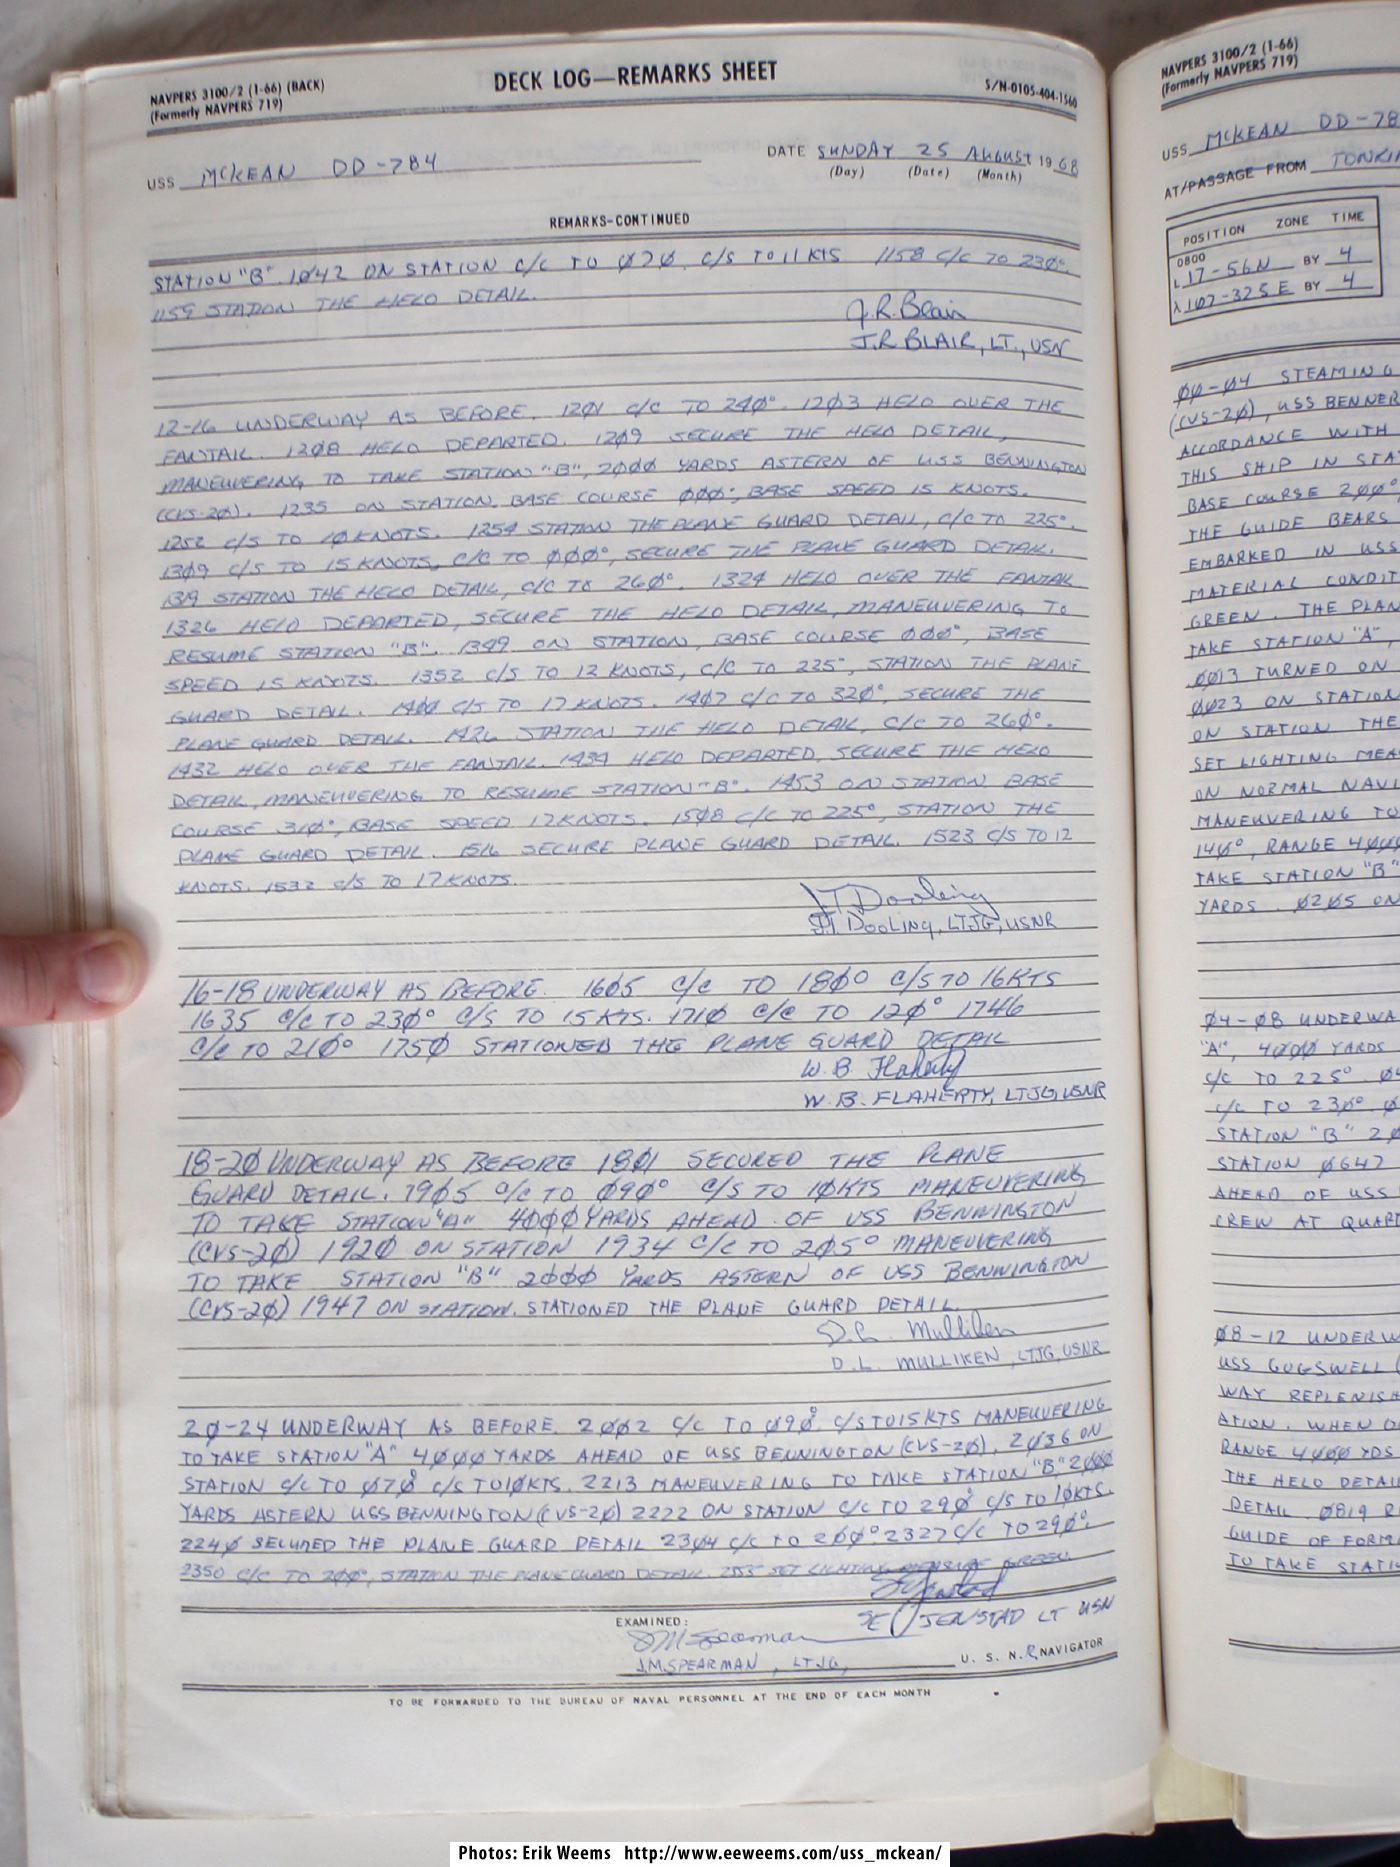 NAVPERS 3100/2 (1-66) (BACK)
(Formerly NAVPERS 719)
DECK LOG—REMARKS SHEET
S/N-0105-404-1560
USS MCKEAN DD-784
DATE SUNDAY 25 AUGUST 1968
(Day) (Date) (Month)
REMARKS-CONTINUED
STATION "B". 1Ø42 ON STATION C/C TO Ø7Ø C/S TO 11 KTS 1158 C/C TO 23Ø°.
1159 STATION THE HELO DETAIL.
J.R. Blair
J.R BLAIR, LT., USN
12-16 UNDERWAY AS BEFORE. 12Ø1 C/C TO 24Ø°. 12Ø3 HELO OVER THE
FANTAIL. 12Ø8 HELO DEPARTED. 12Ø9 SECURE THE HELO DETAIL,
MANEUVERING TO TAKE STATION "B", 2ØØØ YARDS ASTERN OF USS BENNINGTON
(CVS-2Ø). 1235 ON STATION. BASE COURSE ØØØ°, BASE SPEED 15 KNOTS.
1252 C/S TO 1Ø KNOTS. 1254 STATION THE PLANE GUARD DETAIL, C/C TO 225°.
13Ø9 C/S TO 15 KNOTS, C/C TO ØØØ°, SECURE THE PLANE GUARD DETAIL.
1319 STATION THE HELO DETAIL, C/C TO 26Ø°. 1324 HELO OVER THE FANTAIL
1326 HELO DEPARTED, SECURE THE HELO DETAIL, MANEUVERING TO
RESUME STATION "B". 1349 ON STATION, BASE COURSE ØØØ°, BASE
SPEED 15 KNOTS. 1352 C/S TO 12 KNOTS, C/C TO 225°, STATION THE PLANE
GUARD DETAIL. 14ØØ C/S TO 17 KNOTS. 14Ø7 C/C TO 32Ø°, SECURE THE
PLANE GUARD DETAIL. 1426 STATION THE HELO DETAIL, C/C TO 26Ø°.
1432 HELO OVER THE FANTAIL. 1434 HELO DEPARTED, SECURE THE HELO
DETAIL, MANEUVERING TO RESUME STATION "B". 1453 ON STATION BASE
COURSE 31Ø°, BASE SPEED 12 KNOTS. 15Ø8 C/C TO 225°, STATION THE
PLANE GUARD DETAIL. 1516 SECURE PLANE GUARD DETAIL. 1523 C/S TO 12
KNOTS. 1532 C/S TO 17 KNOTS.
J.T. Dooling
J.T. DOOLING, LTJG, USNR
16-18 UNDERWAY AS BEFORE. 16Ø5 C/C TO 18Ø° C/S TO 16 KTS
1635 C/C TO 23Ø° C/S TO 15 KTS. 171Ø C/C TO 12Ø° 1746
C/C TO 21Ø° 175Ø STATIONED THE PLANE GUARD DETAIL
W. B. Flaherty
W. B. FLAHERTY, LTJG, USNR
18-2Ø UNDERWAY AS BEFORE 18Ø1 SECURED THE PLANE
GUARD DETAIL. 19Ø5 C/C TO Ø9Ø° C/S TO 1ØKTS MANEUVERING
TO TAKE STATION "A" 4ØØØ YARDS AHEAD OF USS BENNINGTON
(CVS-2Ø) 192Ø ON STATION 1934 C/C TO 2Ø5° MANEUVERING
TO TAKE STATION "B" 2ØØØ YARDS ASTERN OF USS BENNINGTON
(CVS-2Ø) 1947 ON STATION. STATIONED THE PLANE GUARD DETAIL.
D. L. Mulliken
D. L. MULLIKEN, LTJG, USNR
2Ø-24 UNDERWAY AS BEFORE. 2ØØ2 C/C TO Ø9Ø° C/S TO 15 KTS MANEUVERING
TO TAKE STATION "A" 4ØØØ YARDS AHEAD OF USS BENNINGTON (CVS-2Ø). 2Ø36 ON
STATION C/C TO Ø7Ø° C/S TO 1ØKTS. 2213 MANEUVERING TO TAKE STATION "B" 2ØØØ
YARDS ASTERN USS BENNINGTON (CVS-2Ø) 2222 ON STATION C/C TO 29Ø° C/S TO 1ØKTS.
224Ø SECURED THE PLANE GUARD DETAIL 23Ø4 C/C TO 2ØØ°. 2327 C/C TO 29Ø°.
2350 C/C TO 2ØØ°, STATION THE PLANE GUARD DETAIL. SET LIGHTING MEASURE GREEN.
SE JENSTAD LT USN
EXAMINED:
J M Spearman
J.M. SPEARMAN, LTJG, U. S. N. R NAVIGATOR
TO BE FORWARDED TO THE BUREAU OF NAVAL PERSONNEL AT THE END OF EACH MONTH
NAVPERS 3100/2 (1-66)
(Formerly NAVPERS 719)
USS MCKEAN DD-78
AT/PASSAGE FROM TONKIN
POSITION ZONE TIME
0800
L 17-56N BY 4
λ 1Ø7-32.5 E BY 4
ØØ-Ø4 STEAMING
(CVS-2Ø), USS BENNER
ACCORDANCE WITH
THIS SHIP IN STA
BASE COURSE 2ØØ°
THE GUIDE BEARS
EMBARKED IN USS
MATERIAL CONDIT
GREEN. THE PLAN
TAKE STATION "A",
ØØ13 TURNED ON
ØØ23 ON STATION
ON STATION THE
SET LIGHTING MEA
ON NORMAL NAVI
MANEUVERING TO
14Ø°, RANGE 4ØØØ
TAKE STATION "B"
YARDS. Ø2Ø5 ON
Ø4-Ø8 UNDERWA
"A", 4ØØØ YARDS
C/C TO 225°. Ø4
C/C TO 23Ø° Ø
STATION "B" 2Ø
STATION Ø647
AHEAD OF USS
CREW AT QUART
Ø8-12 UNDERW
USS COGSWELL (
WAY REPLENISH
ATION. WHEN D
RANGE 4ØØØ YDS
THE HELO DETAI
DETAIL. Ø819 R
GUIDE OF FORM
TO TAKE STATIO
Photos: Erik Weems http://www.eeweems.com/uss_mckean/